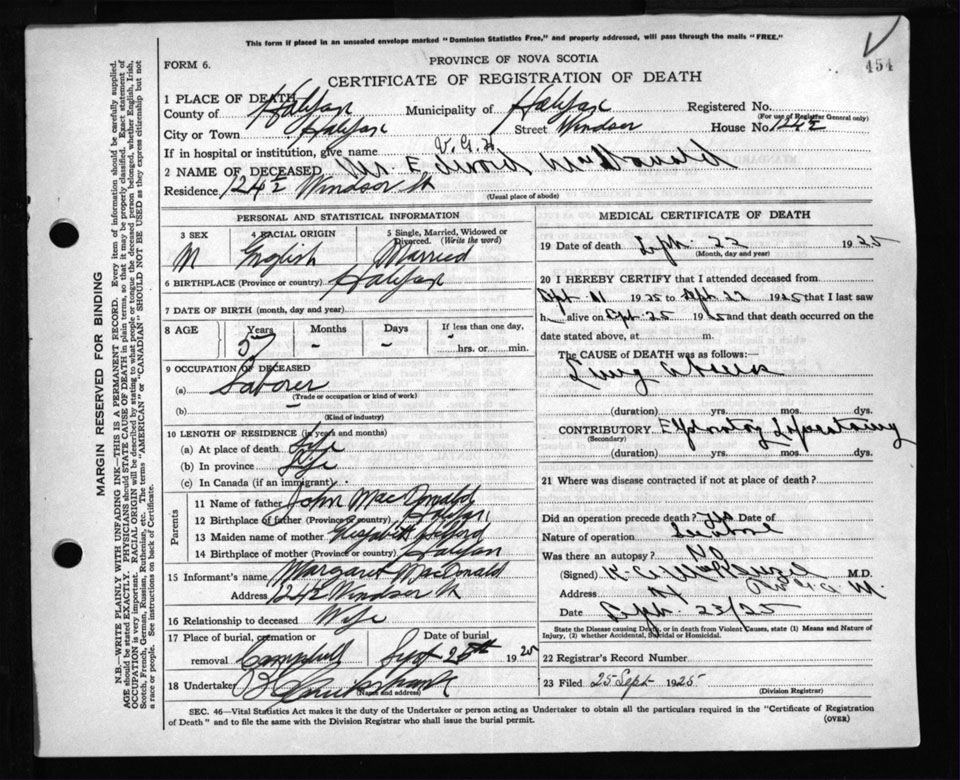 This form if placed in an unsealed envelope marked "Dominion Statistics Free," and properly addressed, will pass through the mails "FREE."
454
FORM 6.
PROVINCE OF NOVA SCOTIA
CERTIFICATE OF REGISTRATION OF DEATH
1 PLACE OF DEATH
County of Halifax Municipality of Halifax Registered No.
(For use of Registrar General only)
City or Town Halifax Street Windsor House No. 124½
If in hospital or institution, give name V.G.H.
2 NAME OF DECEASED Mr. Edward MacDonald
Residence 124½ Windsor St
(Usual place of abode)
PERSONAL AND STATISTICAL INFORMATION
3 SEX 4 RACIAL ORIGIN 5 Single, Married, Widowed or Divorced. (Write the word)
M English Married
6 BIRTHPLACE (Province or country) Halifax
7 DATE OF BIRTH (month, day and year)
8 AGE Years Months Days If less than one day,
57 - - hrs. or min.
9 OCCUPATION OF DECEASED
(a) Laborer
(Trade or occupation or kind of work)
(b)
(Kind of industry)
10 LENGTH OF RESIDENCE (in years and months)
(a) At place of death Life
(b) In province Life
(c) In Canada (if an immigrant)
Parents
11 Name of father John MacDonald
12 Birthplace of father (Province or country) Halifax
13 Maiden name of mother
14 Birthplace of mother (Province or country) Halifax
15 Informant's name Margaret MacDonald
Address 124½ Windsor St
16 Relationship to deceased Wife
17 Place of burial, cremation or removal Date of burial
Camphill Sept 25th 1925
18 Undertaker Cruikshank
(Name and address)
MEDICAL CERTIFICATE OF DEATH
19 Date of death Sept. 22 1925
(Month, day and year)
20 I HEREBY CERTIFY that I attended deceased from
Sept 1925 to Sept 22 1925 that I last saw
h alive on Sept 1925 and that death occurred on the
date stated above, at m.
The CAUSE of DEATH was as follows:—
Lung abscess
(duration) yrs. mos. dys.
CONTRIBUTORY Exploratory
(Secondary)
(duration) yrs. mos. dys.
21 Where was disease contracted if not at place of death?
Did an operation precede death? Yes Date of
Nature of operation See above
Was there an autopsy? No
(Signed) MacKenzie M.D.
Address
Date Sept. 23/25
State the Disease causing Death, or in death from Violent Causes, state (1) Means and Nature of Injury, (2) whether Accidental, Suicidal or Homicidal.
22 Registrar's Record Number
23 Filed 25 Sept 1925
(Division Registrar)
SEC. 46—Vital Statistics Act makes it the duty of the Undertaker or person acting as Undertaker to obtain all the particulars required in the "Certificate of Registration
of Death" and to file the same with the Division Registrar who shall issue the burial permit.
(OVER)
MARGIN RESERVED FOR BINDING
N.B.—WRITE PLAINLY WITH UNFADING INK—THIS IS A PERMANENT RECORD. Every item of information should be carefully supplied.
AGE should be stated EXACTLY. PHYSICIANS should STATE CAUSE OF DEATH in plain terms, so that it may be properly classified. Exact statement of
OCCUPATION is very important. RACIAL ORIGIN will be described by stating to what people or tongue the deceased person belonged, whether English, Irish,
Scotch, French, German, Russian, Ruthenian, etc. The terms "AMERICAN" or "CANADIAN" SHOULD NOT BE USED as they express citizenship but not
a race or people. See instructions on back of Certificate.